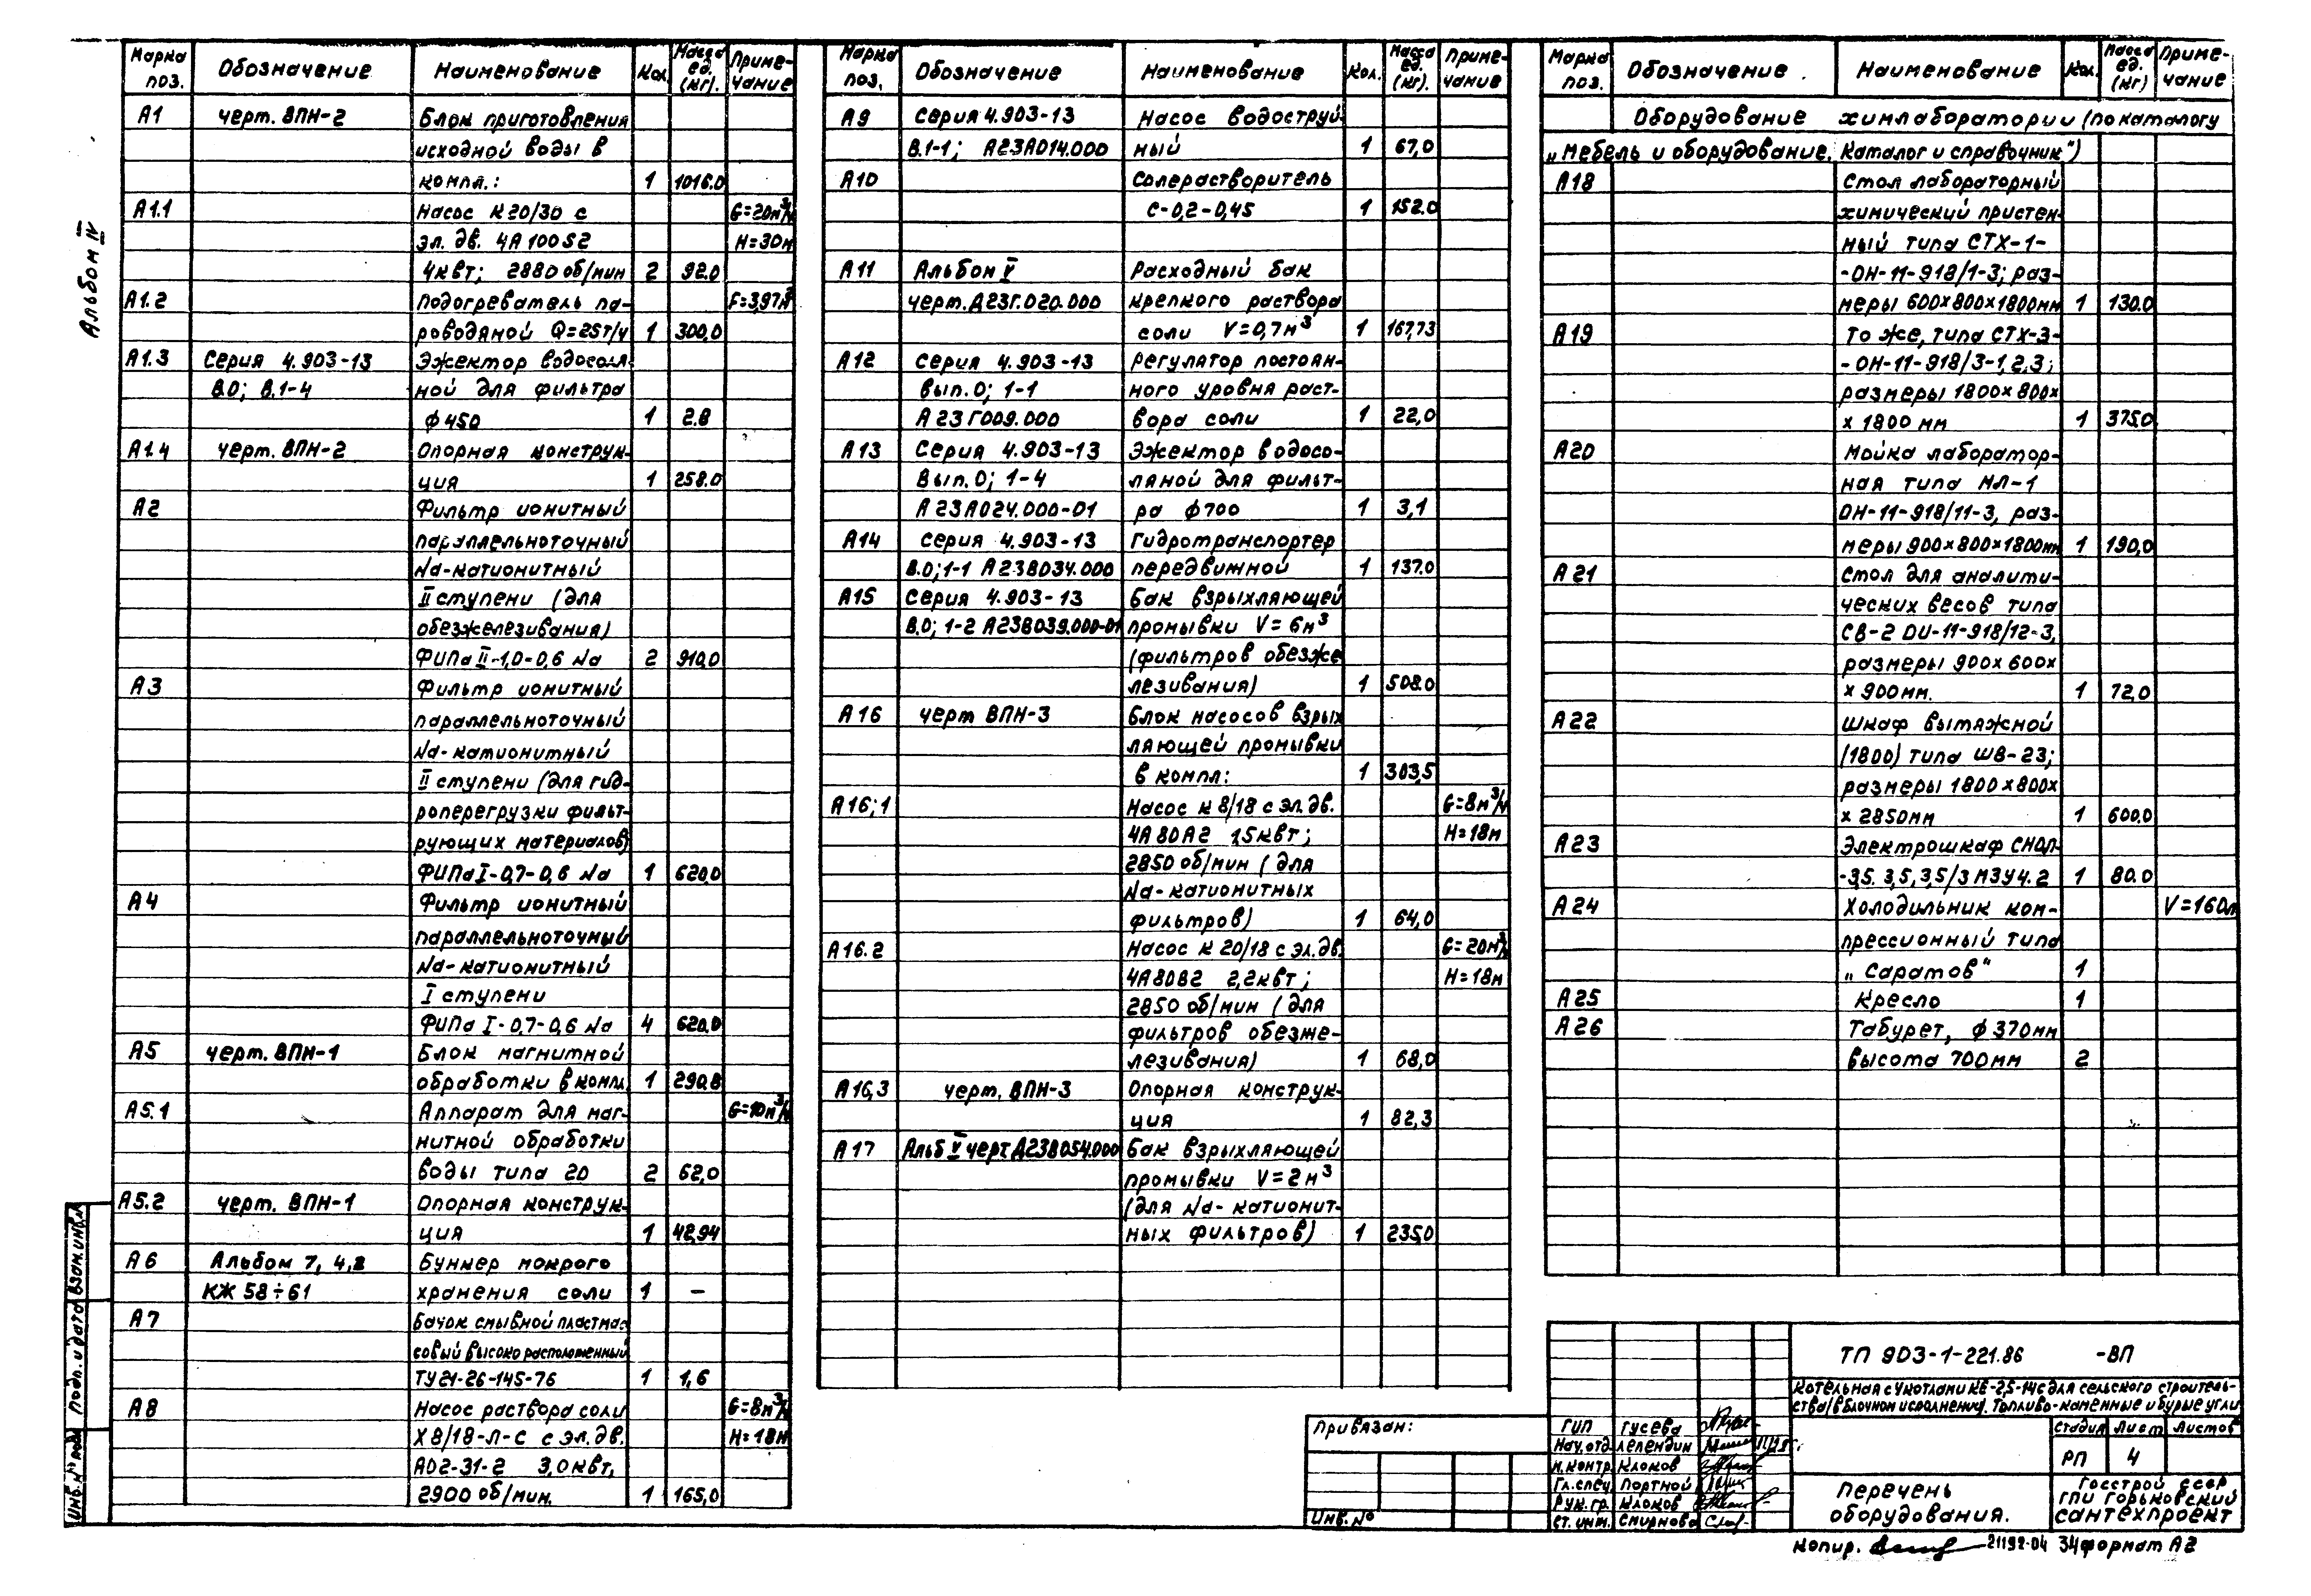 Альбом IV
Марка поз. Обозначение Наименование Кол. Масса ед. (кг). Приме- чание
А1 черт. ВПН-2 Блок приготовления
исходной воды в
компл.: 1 1016.0
А1.1 Насос К 20/30 с G=20м³/ч
эл. дв. 4А100S2 Н=30м
4квт; 2880 об/мин 2 92.0
А1.2 Подогреватель па- F=3,97м²
роводяной Q=25т/ч 1 300,0
А1.3 Серия 4.903-13 Эжектор водосоля-
В.0; В.1-4 ной для фильтра
ф450 1 2.8
А1.4 черт. ВПН-2 Опорная конструк-
ция 1 258.0
А2 Фильтр ионитный
параллельноточный
Na-катионитный
II ступени (для
обезжелезивания)
ФИПа II-1,0-0,6 Na 2 910,0
А3 Фильтр ионитный
параллельноточный
Na-катионитный
II ступени (для гид-
роперегрузки фильт-
рующих материалов)
ФИПа I-0,7-0,6 Na 1 620,0
А4 Фильтр ионитный
параллельноточный
Na-катионитный
I ступени
ФИПа I-0,7-0,6 Na 4 620,0
А5 черт. ВПН-1 Блок магнитной
обработки в компл. 1 290,8
А5.1 Аппарат для маг- G=10м³/ч
нитной обработки
воды типа 20 2 62,0
А5.2 черт. ВПН-1 Опорная конструк-
ция 1 42,94
А6 Альбом 7, 4,2 Бункер мокрого
КЖ 58÷61 хранения соли 1 —
А7 Бачок смывной пластмас
совый высоко расположенный
ТУ21-26-145-76 1 1,6
А8 Насос раствора соли G=8м³/ч
Х8/18-Л-С с эл.дв. Н=18м
АО2-31-2 3,0квт,
2900 об/мин. 1 165,0
Марка поз. Обозначение Наименование Кол. Масса ед. (кг). Приме- чание
А9 Серия 4.903-13 Насос водоструй-
В.1-1; А23А014.000 ный 1 67,0
А10 Солерастворитель
С-0,2-0,45 1 152.0
А11 Альбом V Расходный бак
черт.Д23Г.020.000 крепкого раствора
соли V=0,7м³ 1 167,73
А12 Серия 4.903-13 Регулятор постоян-
Вып.0; 1-1 ного уровня раст-
А23Г009.000 вора соли 1 22,0
А13 Серия 4.903-13 Эжектор водосо-
Вып.0; 1-4 ляной для фильт-
А23А024.000-01 ра ф700 1 3,1
А14 Серия 4.903-13 Гидротранспортер
В.0;1-1 А23В034.000 передвижной 1 137.0
А15 Серия 4.903-13 Бак взрыхляющей
В.0; 1-2 А23В039.000-01 промывки V=6м³
(фильтров обезже
лезивания) 1 508.0
А16 черт ВПН-3 Блок насосов взрых
ляющей промывки
в компл: 1 303,5
А16;1 Насос К 8/18 с эл.дв. G=8м³/ч
4А80А2 1,5квт; Н=18м
2850 об/мин (для
Na-катионитных
фильтров) 1 64,0
А16.2 Насос К 20/18 с эл.дв. G=20м³/ч
4А80В2 2,2квт; Н=18м
2850 об/мин (для
фильтров обезже-
лезивания) 1 68,0
А16,3 черт. ВПН-3 Опорная конструк-
ция 1 82,3
А17 Альб V черт Д23В054.000 Бак взрыхляющей
промывки V=2м³
(для Na-катионит-
ных фильтров) 1 235,0
Марка поз. Обозначение Наименование Кол. Масса ед. (кг) Приме- чание
Оборудование химлаборатории (по каталогу
„Мебель и оборудование. Каталог и справочник")
А18 Стол лабораторный
химический пристен-
ный типа СТХ-1-
-ОН-11-918/1-3; раз-
меры 600х800х1800мм 1 130.0
А19 То же, типа СТХ-3-
-ОН-11-918/3-1,2,3;
размеры 1800х800х
х 1800 мм 1 375.0
А20 Мойка лаборатор-
ная типа МЛ-1
ОН-11-918/11-3, раз-
меры 900х800х1800мм 1 190,0
А21 Стол для аналити-
ческих весов типа
СВ-2 ОИ-11-918/12-3,
размеры 900х600х
х 900мм. 1 72,0
А22 Шкаф вытяжной
(1800) типа ШВ-23;
размеры 1800х800х
х 2850мм 1 600.0
А23 Электрошкаф СНОЛ-
-3,5. 3,5, 3,5/3 МЗУ4.2 1 80.0
А24 Холодильник ком- V=160л
прессионный типа
„Саратов" 1
А25 Кресло 1
А26 Табурет, ф370мм
высота 700мм 2
ТП 903-1-221.86 -ВП
Котельная с 4 котлами КЕ-2,5-14с для сельского строитель-
ства (в блочном исполнении). Топливо-каменные и бурые угли
Стадия Лист Листов
РП 4
Перечень
оборудования.
Госстрой СССР
ГПИ Горьковский
Сантехпроект
ГИП Гусева
Нач.отд Лепендин
Н.контр. Клоков
Гл.спец. Портной
Рук.гр. Клоков
Ст.инж. Смирнова
Привязан:
Инв.№
Инв.№ подл. Подп. и дата Взам.инв.№
Копир. 21192-04 34 формат А2